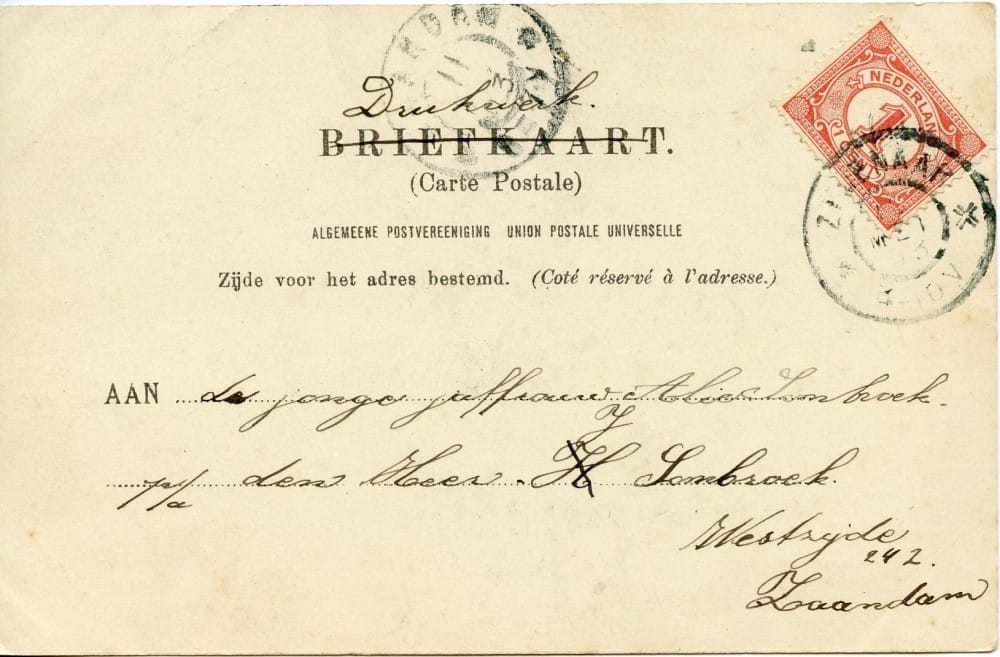 Drukwerk.
BRIEFKAART.
(Carte Postale)
ALGEMEENE POSTVEREENIGING UNION POSTALE UNIVERSELLE
Zijde voor het adres bestemd. (Coté réservé à l'adresse.)
NEDERLAND
1
AAN de jonge juffrouw Alie Lombroek.
J
p/a den Heer. H Lombroek.
Westzijde
242.
Zaandam